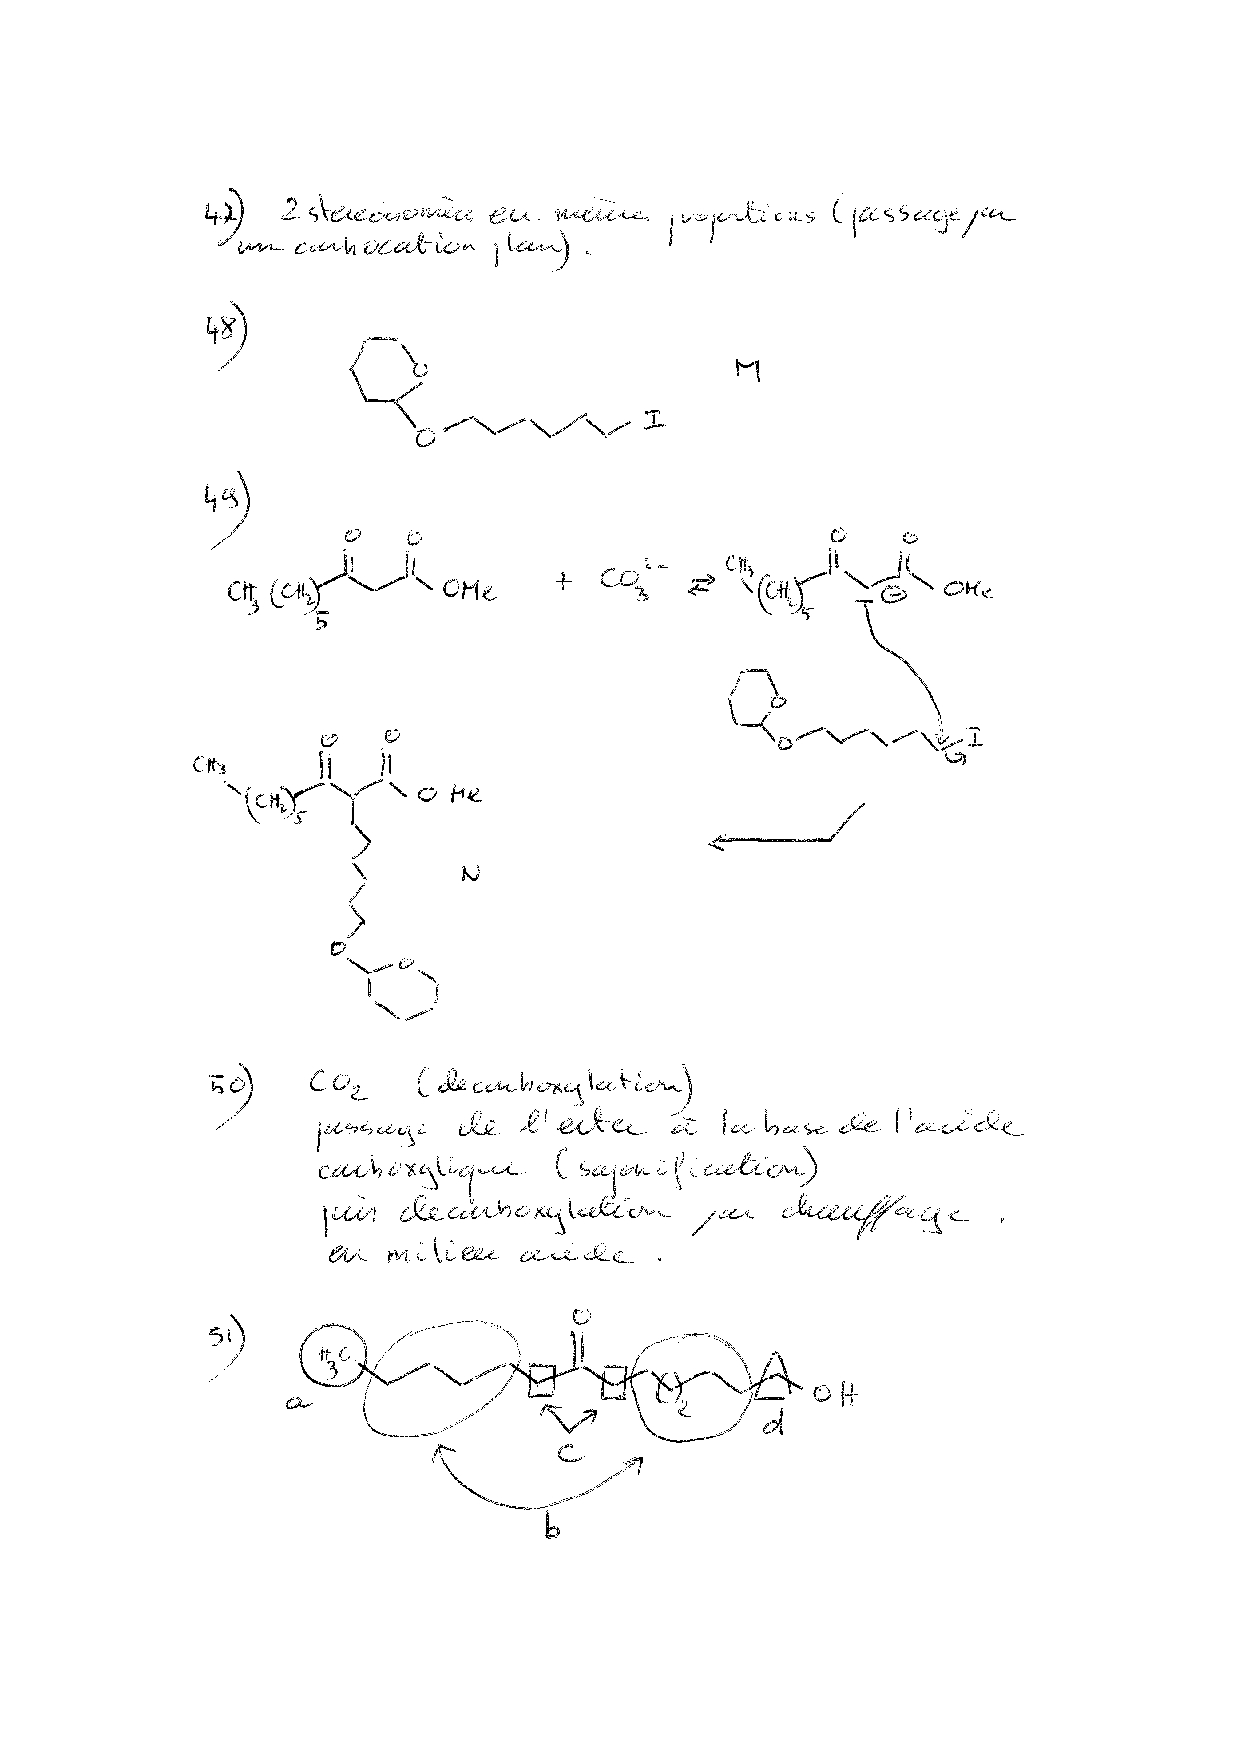 47) 2 stéréoisomères en mêmes proportions (passage par
un carbocation plan).
48)
O
M
O
I
49)
O O
CH3 (CH2)5 OMe + CO3 2- ⇌ CH3 (CH2)5 O O ⊖ OMe
O
O I
O O
CH3 (CH2)5 O Me
N
O
O
50) CO2 (decarboxylation)
passage de l'ester à la base de l'acide
carboxylique (saponification)
puis decarboxylation par chauffage.
en milieu acide.
51)
O
H3C ( )2 OH
a
d
c
b